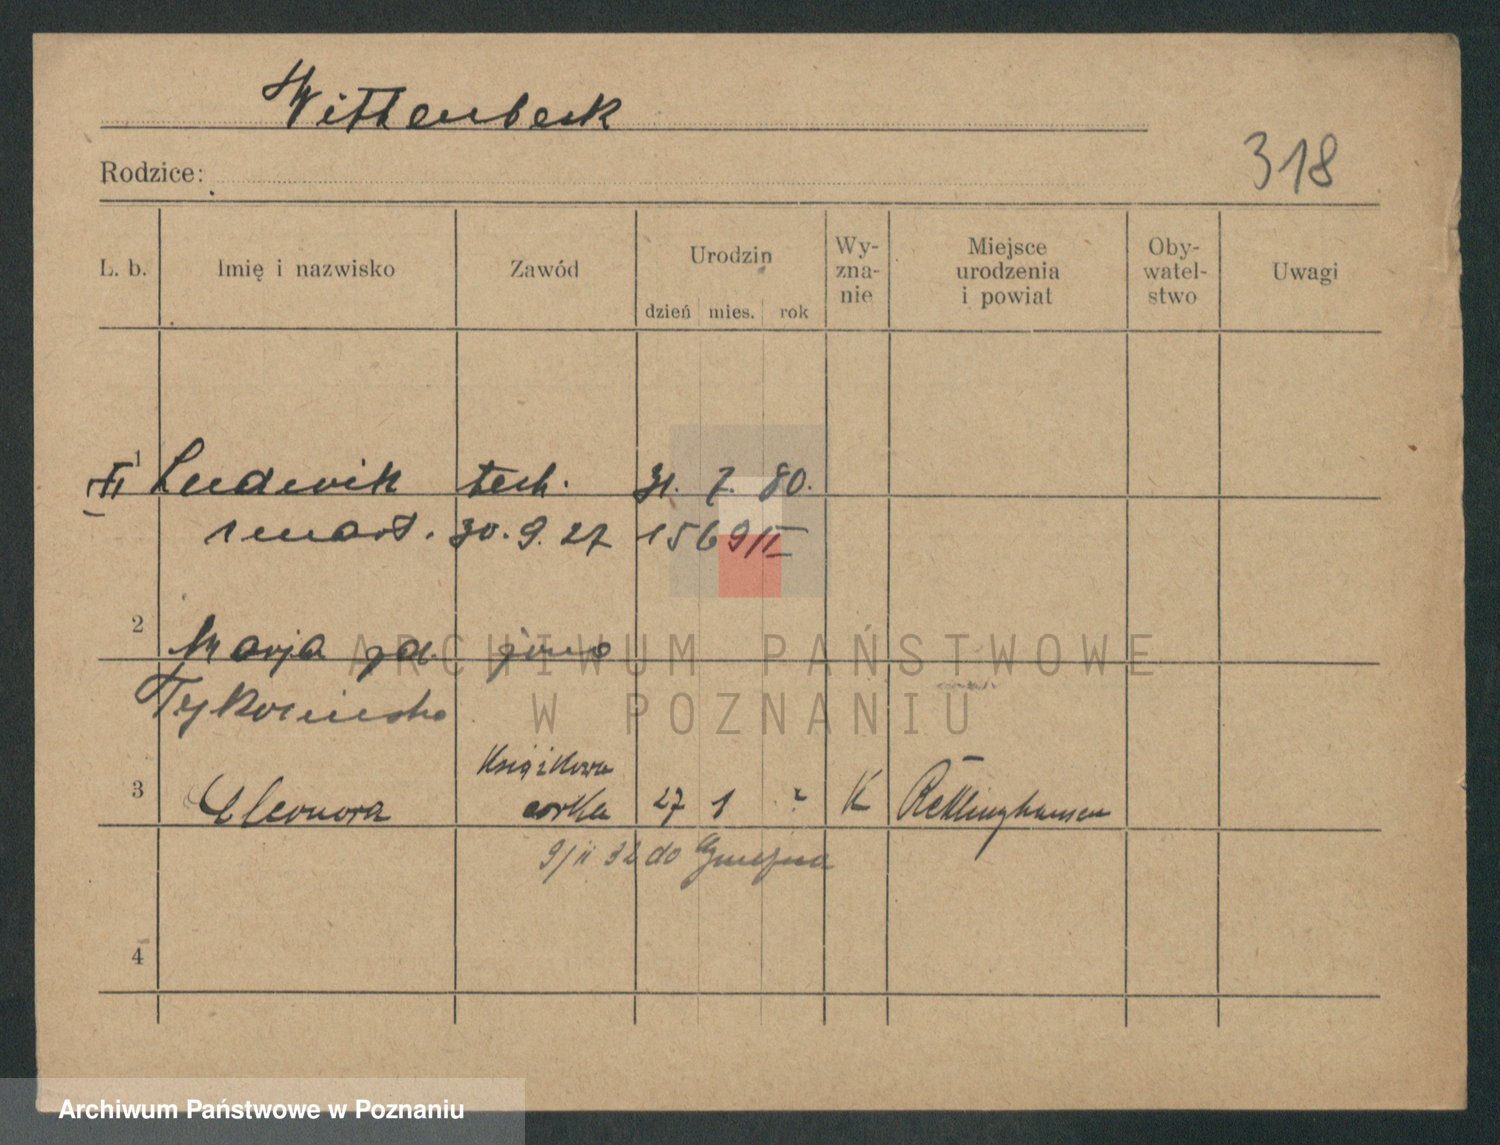 Wittenbeck
Rodzice:
318
L. b. Imię i nazwisko Zawód Urodzin dzień mies. rok Wy-zna-nie Miejsce urodzenia i powiat Oby-watel-stwo Uwagi
1 Ludwik tech. 31. 7. 80.
zmarł. 30. 9. 27 1569/II
2 Marja zd. żona
Tykocinska
Książkowa
3 Eleonora córka 27 1 ? K Recklinghausen
9/II 32 do
4
ARCHIWUM PAŃSTWOWE
W POZNANIU
Archiwum Państwowe w Poznaniu